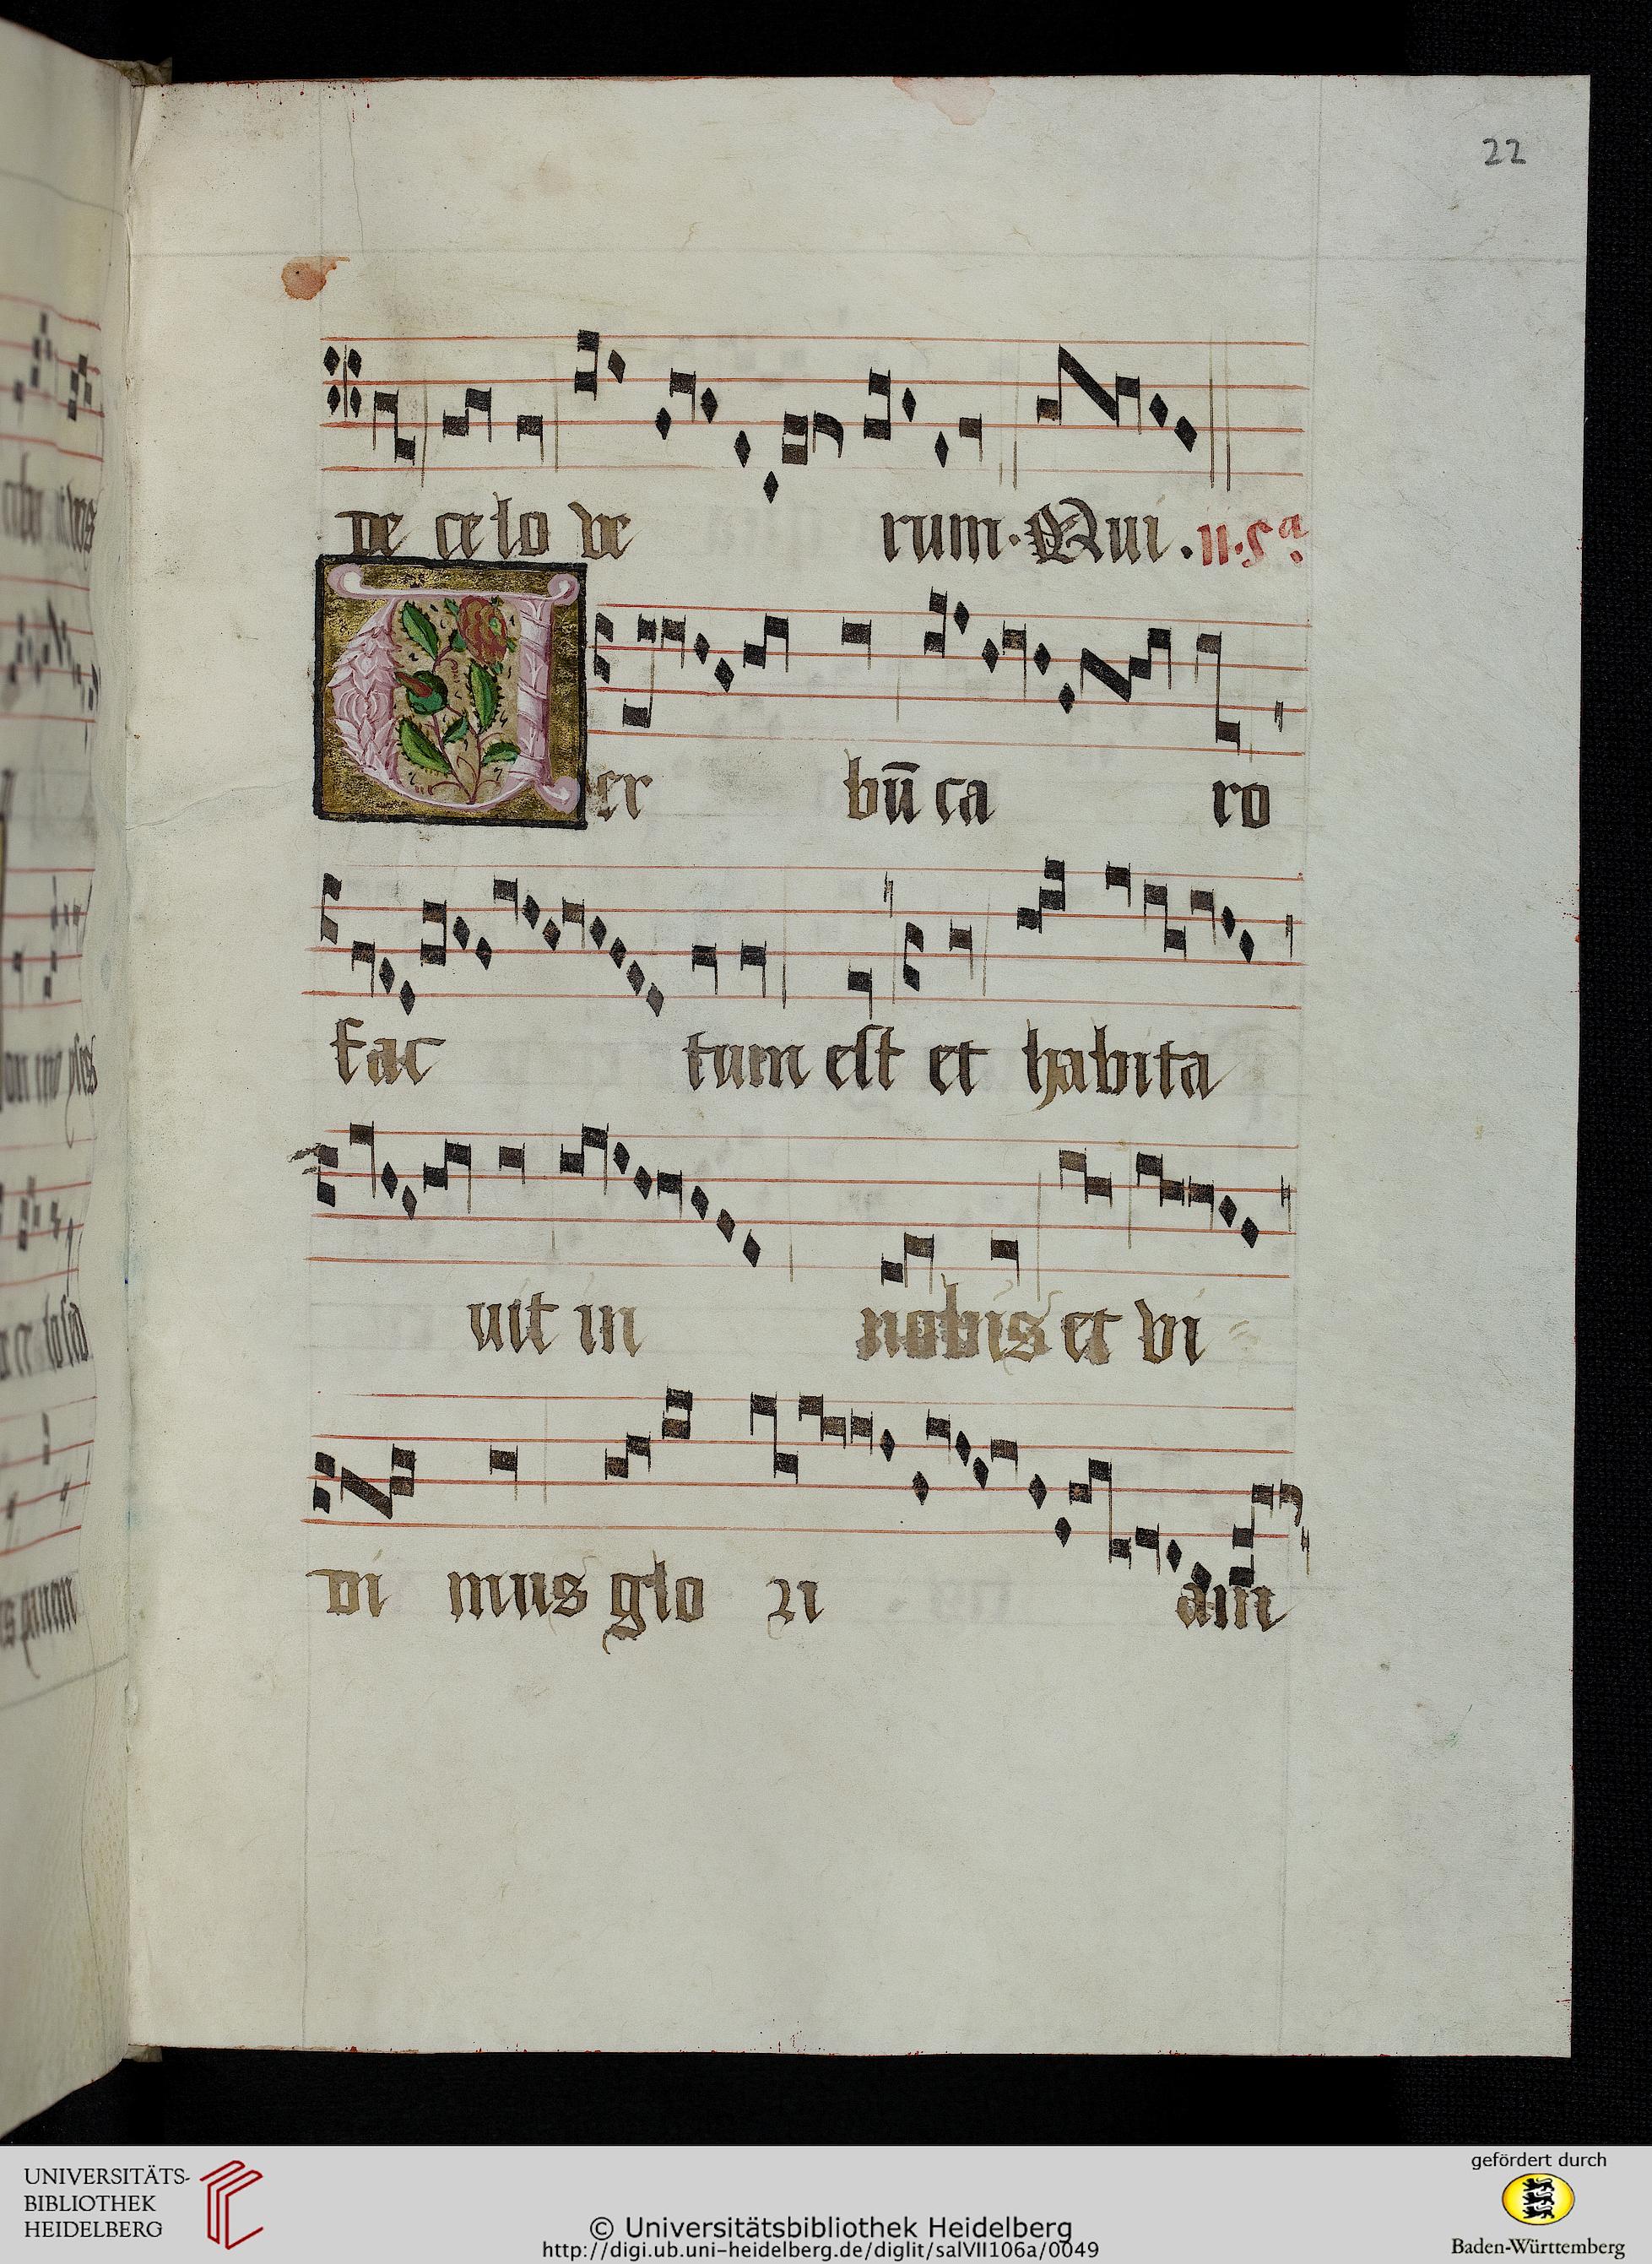 22
de celo ve rum. Qui. ii. sa.
Uer bū ca ro
fac tum est et habita
uit in nobis et vi
di mus glo ri am
UNIVERSITÄTS-
BIBLIOTHEK
HEIDELBERG
© Universitätsbibliothek Heidelberg
http://digi.ub.uni-heidelberg.de/diglit/salVII106a/0049
gefördert durch
Baden-Württemberg